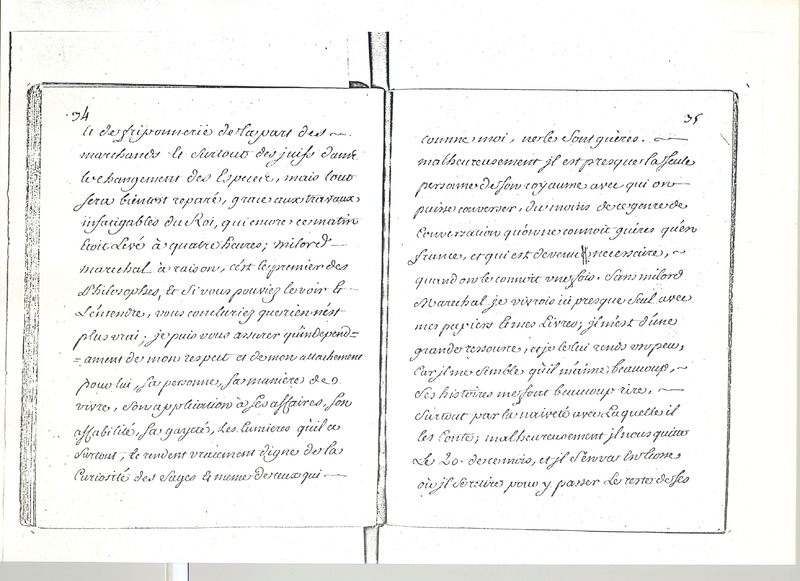 34
et de friponnerie de la part des
marchands et surtout des juifs dans
le changement des Especes, mais tout
sera bientost reparé, grace aux travaux
infatigables du Roi, qui encore ce matin
Etoit Levé à quatre heures; milord
marechal a raison, c'est le premier des
Philosophes, et si vous pouviez le voir et
L'entendre, vous concluriez que rien n'est
plus vrai; je puis vous assurer qu'independ=
=ament de mon respect et de mon attachement
pour lui, sa personne, sa maniere de
vivre, son application à ses affaires, son
affabilité, sa gayeté, Les Lumieres qu'il a
surtout, le rendent vraiment digne de la
Curiosité des Sages et meme de ceux qui
35
comme moi, ne le sont guères.
malheureusement jl est presque la seule
personne de son royaume avec qui on
puisse converser, du moins de ce genre de
Conversation qu'on ne connoit guères qu'en
france, et qui est devenu necessaire,
quand on le connoit une fois. Sans milord
Marechal je vivrois ici presque seul avec
mes papiers et mes Livres; jl m'est d'une
grande ressource, et je le lui rends un peu,
Car jl me semble qu'il m'aime beaucoup,
Ses histoires me font beaucoup rire,
Surtout par la naiveté avec Laquelle il
les Conte; malheureusement jl nous quitte
Le 20. de ce mois, et jl s'en va En Ecosse
où jl se retire pour y passer Le reste de ses